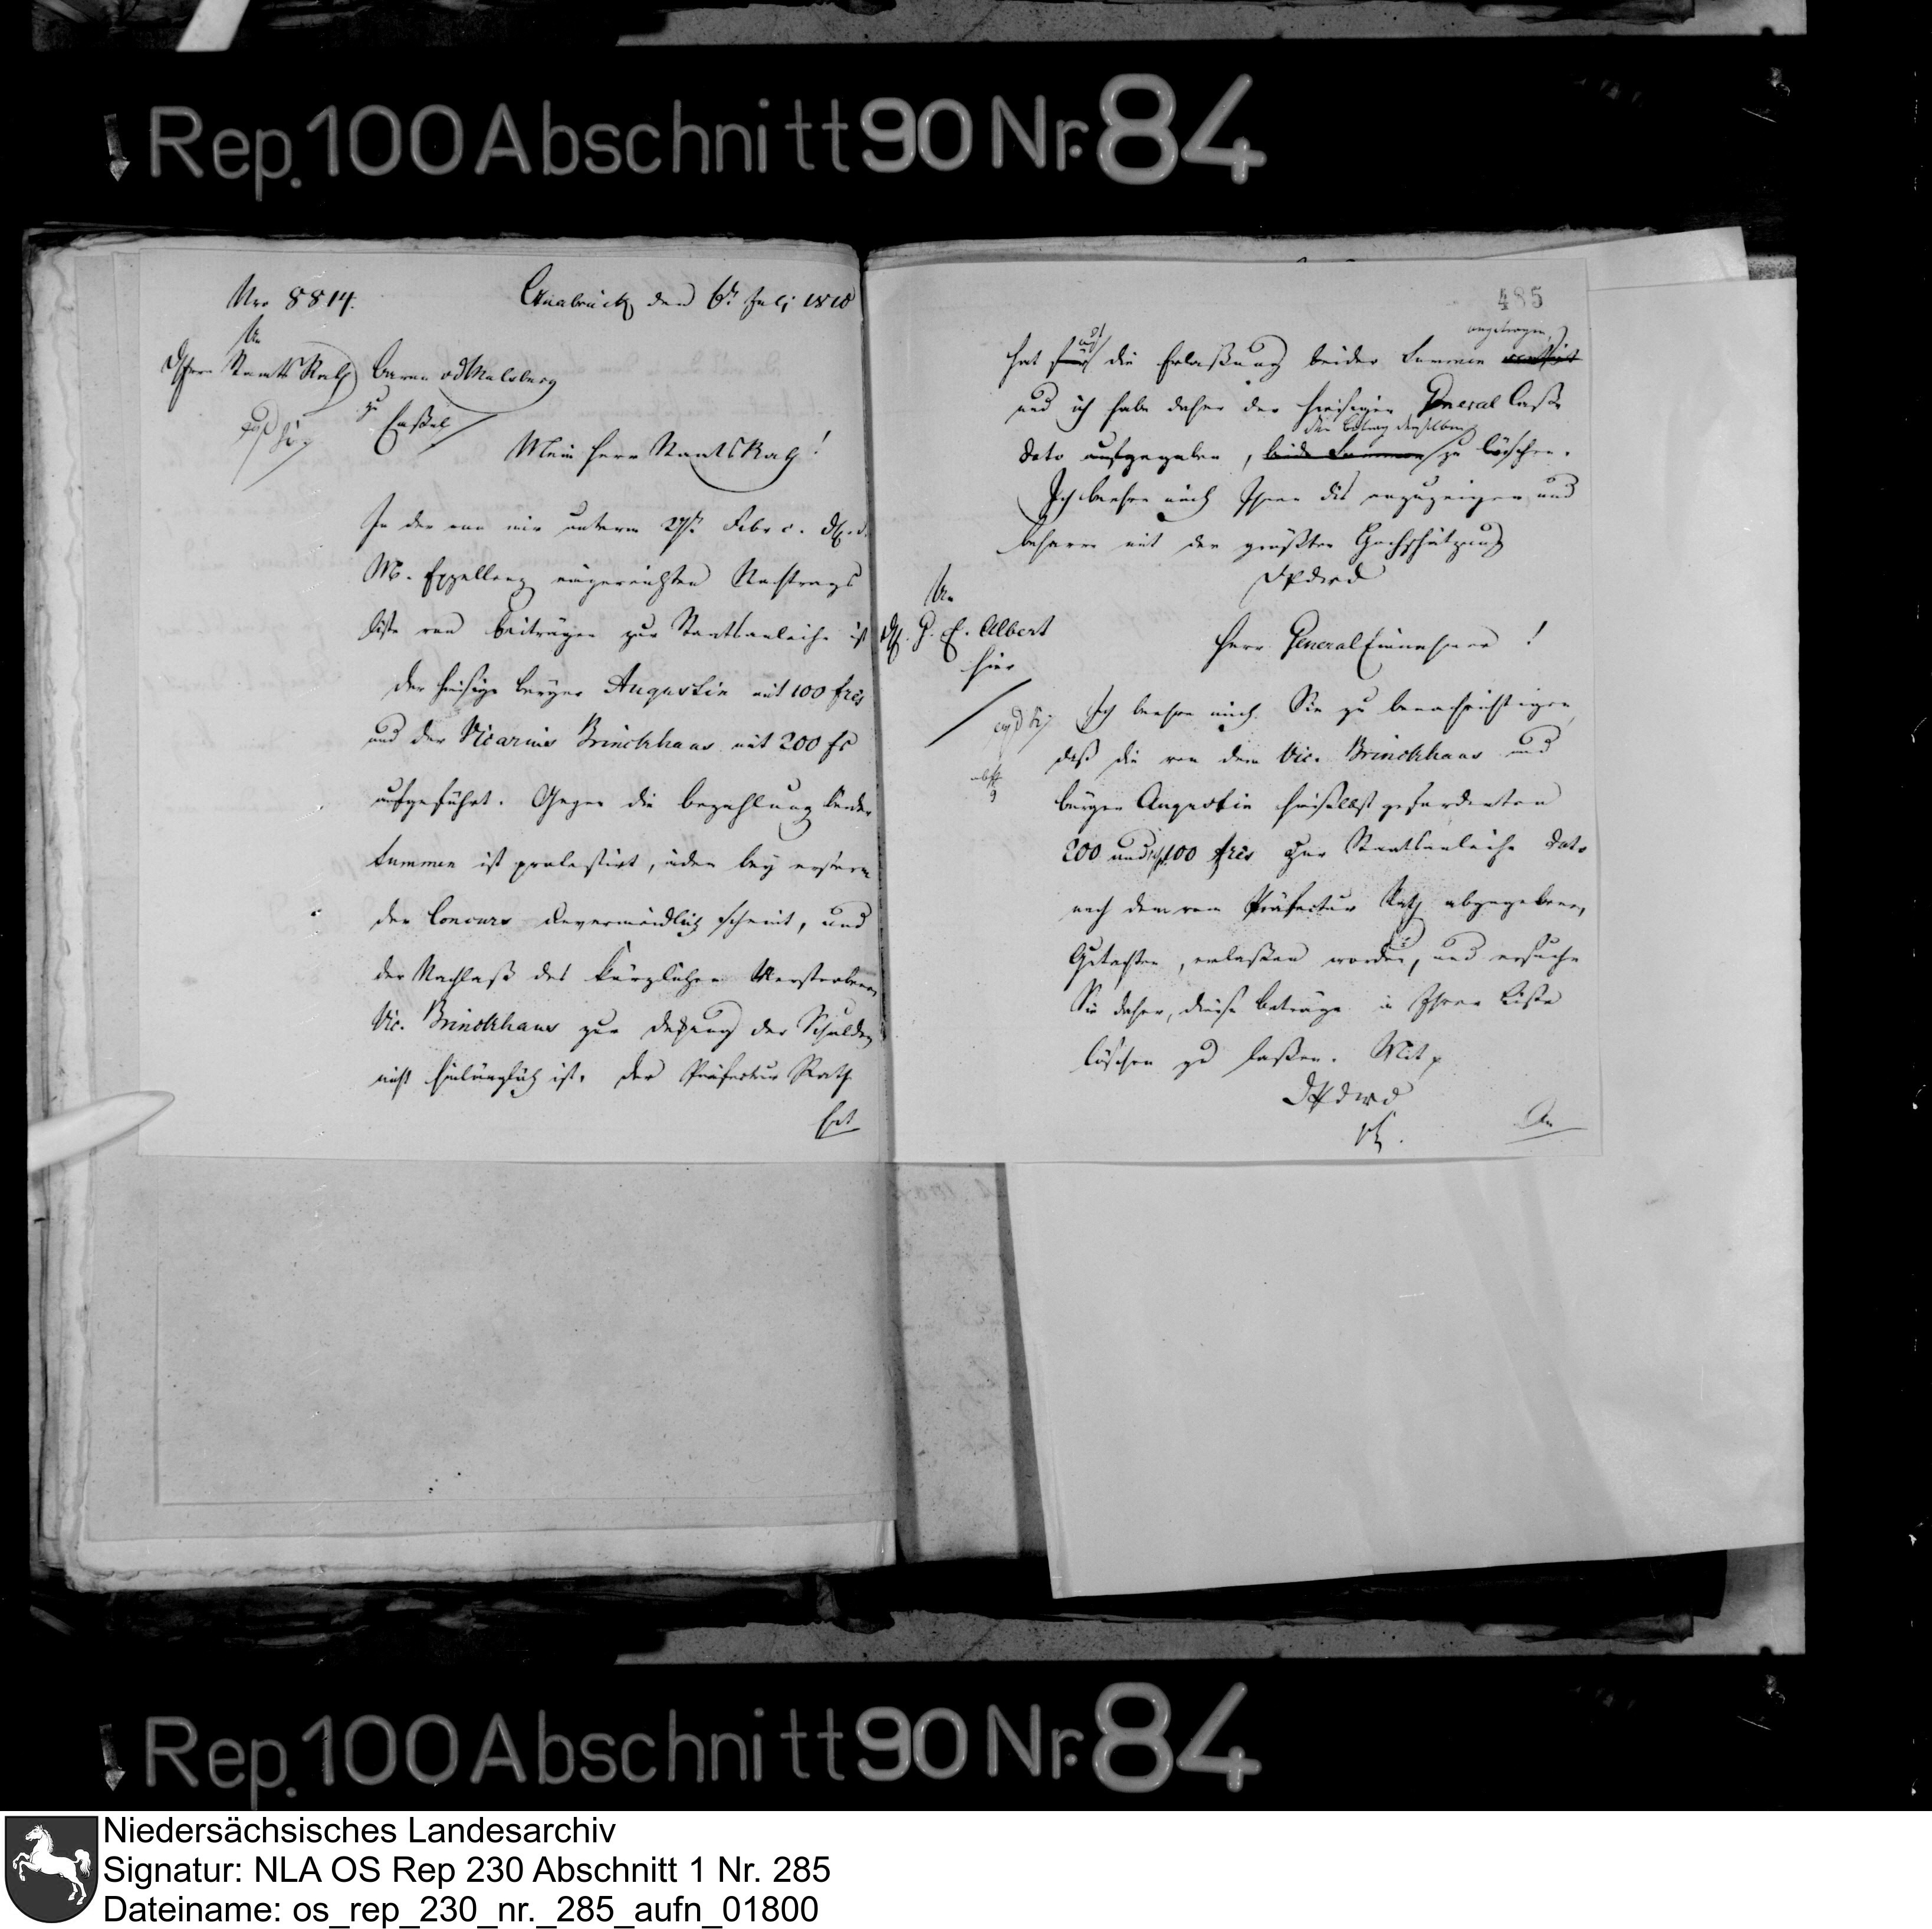 Rep. 100 Abschnitt 90 Nr. 84
Nro 8814. Osnabrück den 6t. Juli 1810
An
Herrn Staats Rath Baron v d Malsburg
zu Cassel
Mein Herr Staats Rath!
In der von mir unterm 27st. Febr c.
M. eingereichten Nachtrags
Liste von Beiträgen zur Staatsanleihe ist
der hiesige Bürger Augustin mit 100 frcs
und der Vicarius Brinckhaus mit 200 fr
aufgeführt. Gegen die Bezahlung beider
Summen ist protestirt, indem bey ersterm
der Concurs unvermeidlich scheint, und
der Nachlaß des kürzlich Verstorbenen
Vic. Brinckhaus zur Deckung der Schulden
nicht hinlänglich ist. Der Präfectur Rath
hat
485
angetragen
hat für auf die Erlaßung beider Summen
und ich habe daher der hiesigen General Casse
den Betrag derselben
dato aufgegeben, beide Summen zu löschen.
Ich beehre mich Ihnen dis anzuzeigen und
beharre mit der größten Hochschätzung
DPdwd
An
H. G. E. Albert
hier
Herr General Einnehmer!
Ich beehre mich Sie zu benachrichtigen,
daß die von dem Vic. Brinckhaus und
Bürger Augustin hieselbst geforderten
200 und 100 frcs zur Staatsanleihe dato
nach dem vom Präfectur Rath abgegebenen
Gutachten, erlaßen worden, und ersuche
Sie daher, diese Beträge in Ihrer Liste
löschen zu laßen. Mit p
DPdwd
An
Rep. 100 Abschnitt 90 Nr. 84
Niedersächsisches Landesarchiv
Signatur: NLA OS Rep 230 Abschnitt 1 Nr. 285
Dateiname: os_rep_230_nr._285_aufn_01800